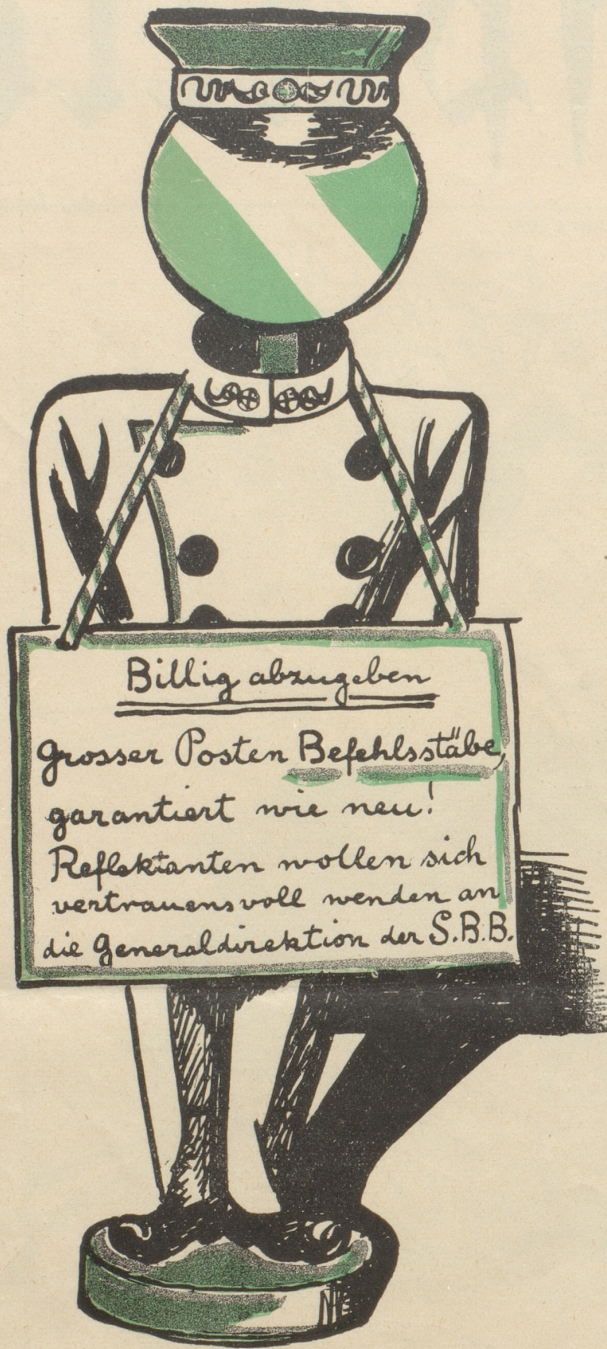 Billig abzugeben
grosser Posten Befehlsstäbe,
garantiert wie neu!
Reflektanten wollen sich
vertrauensvoll wenden an
die Generaldirektion der S.B.B.